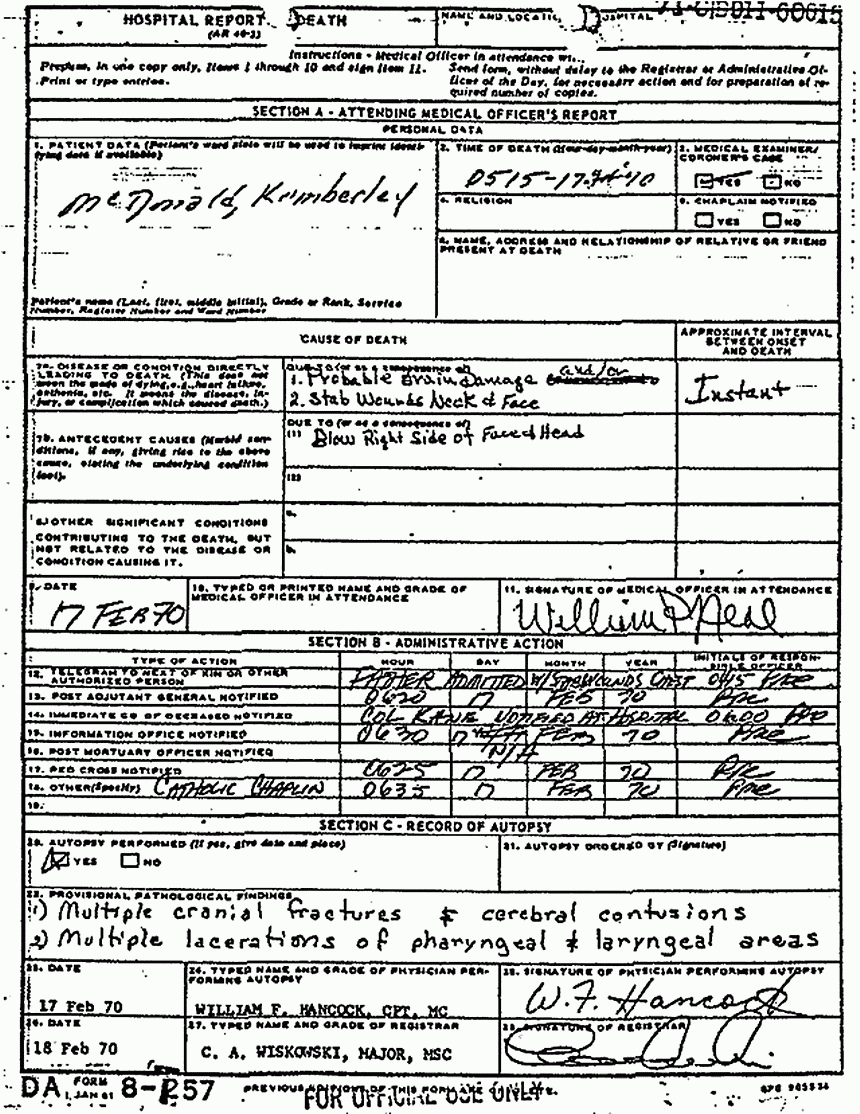 HOSPITAL REPORT DEATH
(AR 40-2)
NAME AND LOCATION HOSPITAL
Instructions - Medical Officer in attendance
Prepare, in one copy only, Items 1 through 10 and sign Item 11.
Print or type entries.
Send form, without delay to the Registrar or Administrative Of-
ficer of the Day, for necessary action and for preparation of re-
quired number of copies.
SECTION A - ATTENDING MEDICAL OFFICER'S REPORT
PERSONAL DATA
1. PATIENT DATA (Patient's ward plate will be used to imprint identi-
fying data if available)
McDonald, Kimberley
Patient's name (Last, first, middle initial), Grade or Rank, Service
Number, Register Number and Ward Number
2. TIME OF DEATH (Hour-day-month-year)
0515-17
3. MEDICAL EXAMINER/
CORONER'S CASE
YES NO
4. RELIGION
5. CHAPLAIN NOTIFIED
YES NO
6. NAME, ADDRESS AND RELATIONSHIP OF RELATIVE OR FRIEND
PRESENT AT DEATH
CAUSE OF DEATH
APPROXIMATE INTERVAL
BETWEEN ONSET
AND DEATH
7a. DISEASE OR CONDITION DIRECTLY
LEADING TO DEATH. (This does not
mean the mode of dying, e.g., heart failure,
asthenia, etc. It means the disease, in-
jury, or complication which caused death.)
DUE TO (or as a consequence of)
1. Probable Brain Damage and/or
2. Stab Wounds Neck & Face
Instant
7b. ANTECEDENT CAUSES (Morbid con-
ditions, if any, giving rise to the above
cause, stating the underlying condition
last).
DUE TO (or as a consequence of)
(1) Blow Right Side of Face & Head
(2)
8. OTHER SIGNIFICANT CONDITIONS
CONTRIBUTING TO THE DEATH, BUT
NOT RELATED TO THE DISEASE OR
CONDITION CAUSING IT.
a.
b.
9. DATE
17 FEB 70
10. TYPED OR PRINTED NAME AND GRADE OF
MEDICAL OFFICER IN ATTENDANCE
11. SIGNATURE OF MEDICAL OFFICER IN ATTENDANCE
William P Neal
SECTION B - ADMINISTRATIVE ACTION
TYPE OF ACTION HOUR DAY MONTH YEAR INITIALS OF RESPON-
SIBLE OFFICER
12. TELEGRAM TO NEXT OF KIN OR OTHER
AUTHORIZED PERSON
FATHER ADMITTED W/STAB WOUNDS CHEST
13. POST ADJUTANT GENERAL NOTIFIED 0620 17 FEB 70
14. IMMEDIATE CO OF DECEASED NOTIFIED COL KANE NOTIFIED AT HOSPITAL 0600
15. INFORMATION OFFICE NOTIFIED 0630 17 FEB 70
16. POST MORTUARY OFFICER NOTIFIED N/A
17. RED CROSS NOTIFIED 0625 17 FEB 70
18. OTHER (Specify) CATHOLIC CHAPLIN 0635 17 FEB 70
19.
SECTION C - RECORD OF AUTOPSY
20. AUTOPSY PERFORMED (If yes, give date and place)
YES NO
21. AUTOPSY ORDERED BY (Signature)
22. PROVISIONAL PATHOLOGICAL FINDINGS
1) Multiple cranial fractures & cerebral contusions
2) Multiple lacerations of pharyngeal & laryngeal areas
23. DATE
17 Feb 70
24. TYPED NAME AND GRADE OF PHYSICIAN PER-
FORMING AUTOPSY
WILLIAM F. HANCOCK, CPT, MC
25. SIGNATURE OF PHYSICIAN PERFORMING AUTOPSY
W. F. Hancock
26. DATE
18 Feb 70
27. TYPED NAME AND GRADE OF REGISTRAR
C. A. WISKOWSKI, MAJOR, MSC
28. SIGNATURE OF REGISTRAR
DA FORM 1 JAN 61 8-257
PREVIOUS EDITIONS OF THIS FORM ARE
FOR OFFICIAL USE ONLY